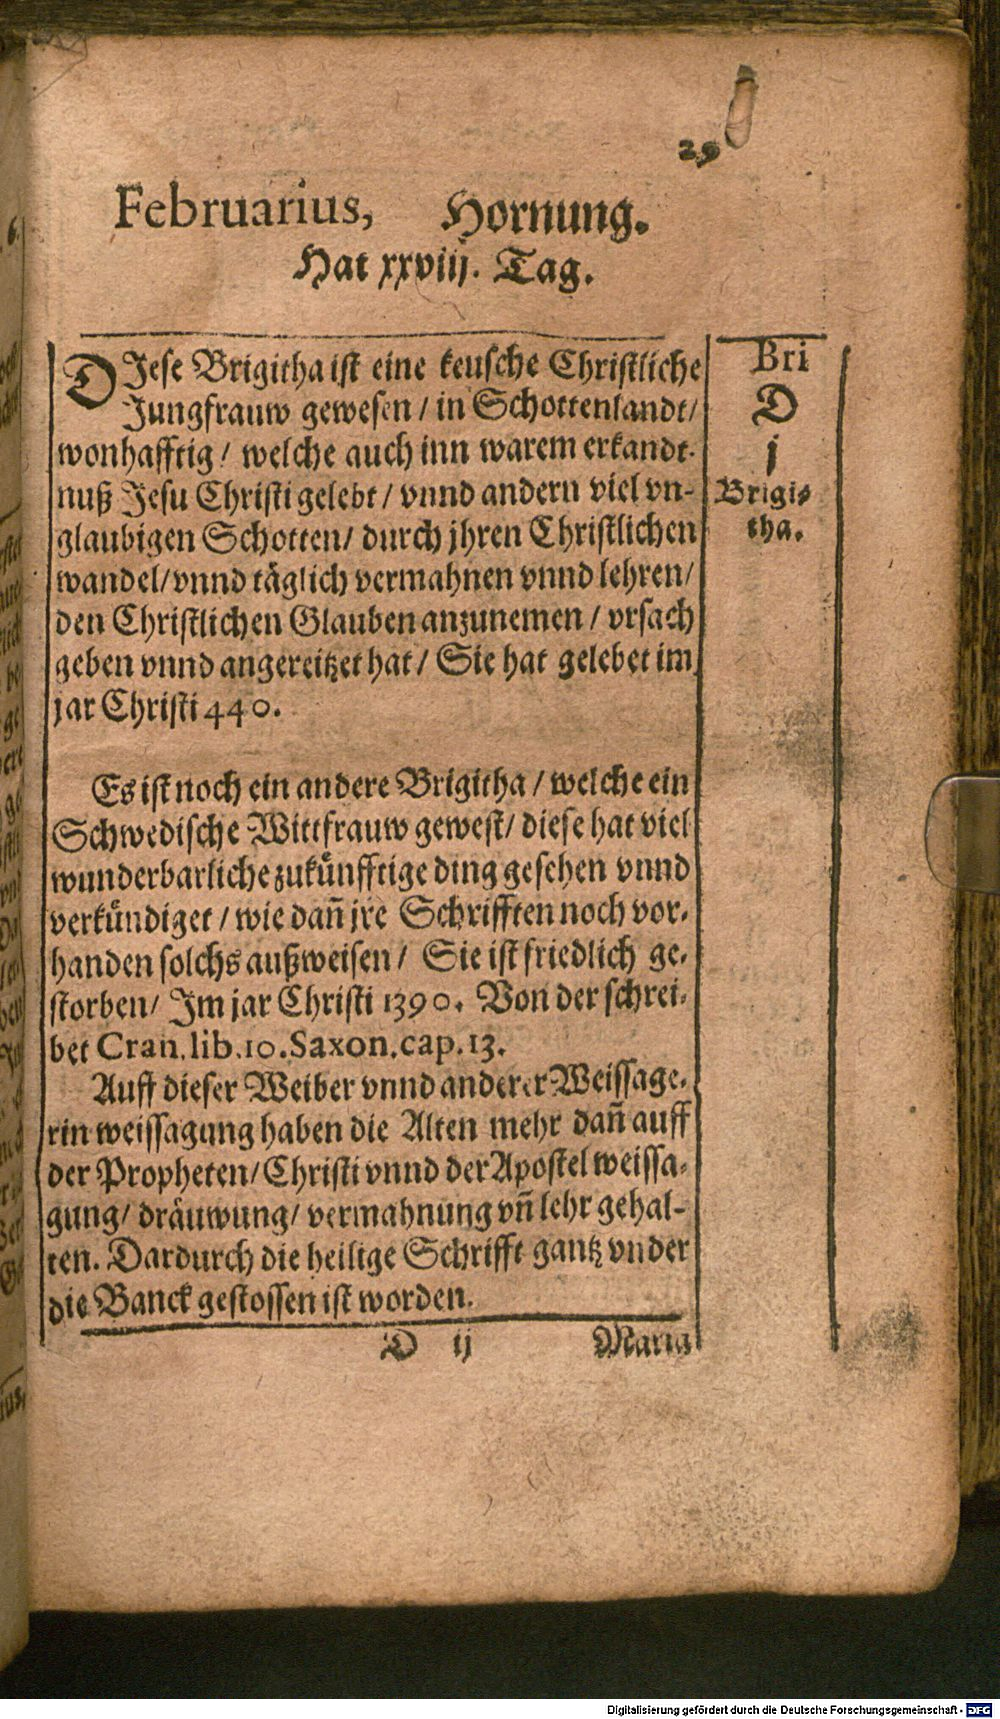 29
Februarius, Hornung.
Hat xxviij. Tag.
DIese Brigitha ist eine keusche Christliche
Jungfrauw gewesen / in Schottenlandt /
wonhafftig / welche auch inn warem erkandt-
nuß Jesu Christi gelebt / vnnd andern viel vn-
glaubigen Schotten / durch jhren Christlichen
wandel / vnnd täglich vermahnen vnnd lehren /
den Christlichen Glauben anzunemen / vrsach
geben vnnd angereitzet hat / Sie hat gelebet im
jar Christi 440.
Es ist noch ein andere Brigitha / welche ein
Schwedische Wittfrauw gewest / diese hat viel
wunderbarliche zukünfftige ding gesehen vnnd
verkündiget / wie dañ jre Schrifften noch vor-
handen solchs außweisen / Sie ist friedlich ge-
storben / Im jar Christi 1390. Von der schrei-
bet Cran. lib. 10. Saxon. cap. 13.
Auff dieser Weiber vnnd anderer Weissage-
rin weissagung haben die Alten mehr dañ auff
der Propheten / Christi vnnd der Apostel weissa-
gung / dräuwung / vermahnung vñ lehr gehal-
ten. Dardurch die heilige Schrifft gantz vnder
die Banck gestossen ist worden.
Bri
D
j
Brigi-
tha.
D ij Maria
Digitalisierung gefördert durch die Deutsche Forschungsgemeinschaft - DFG